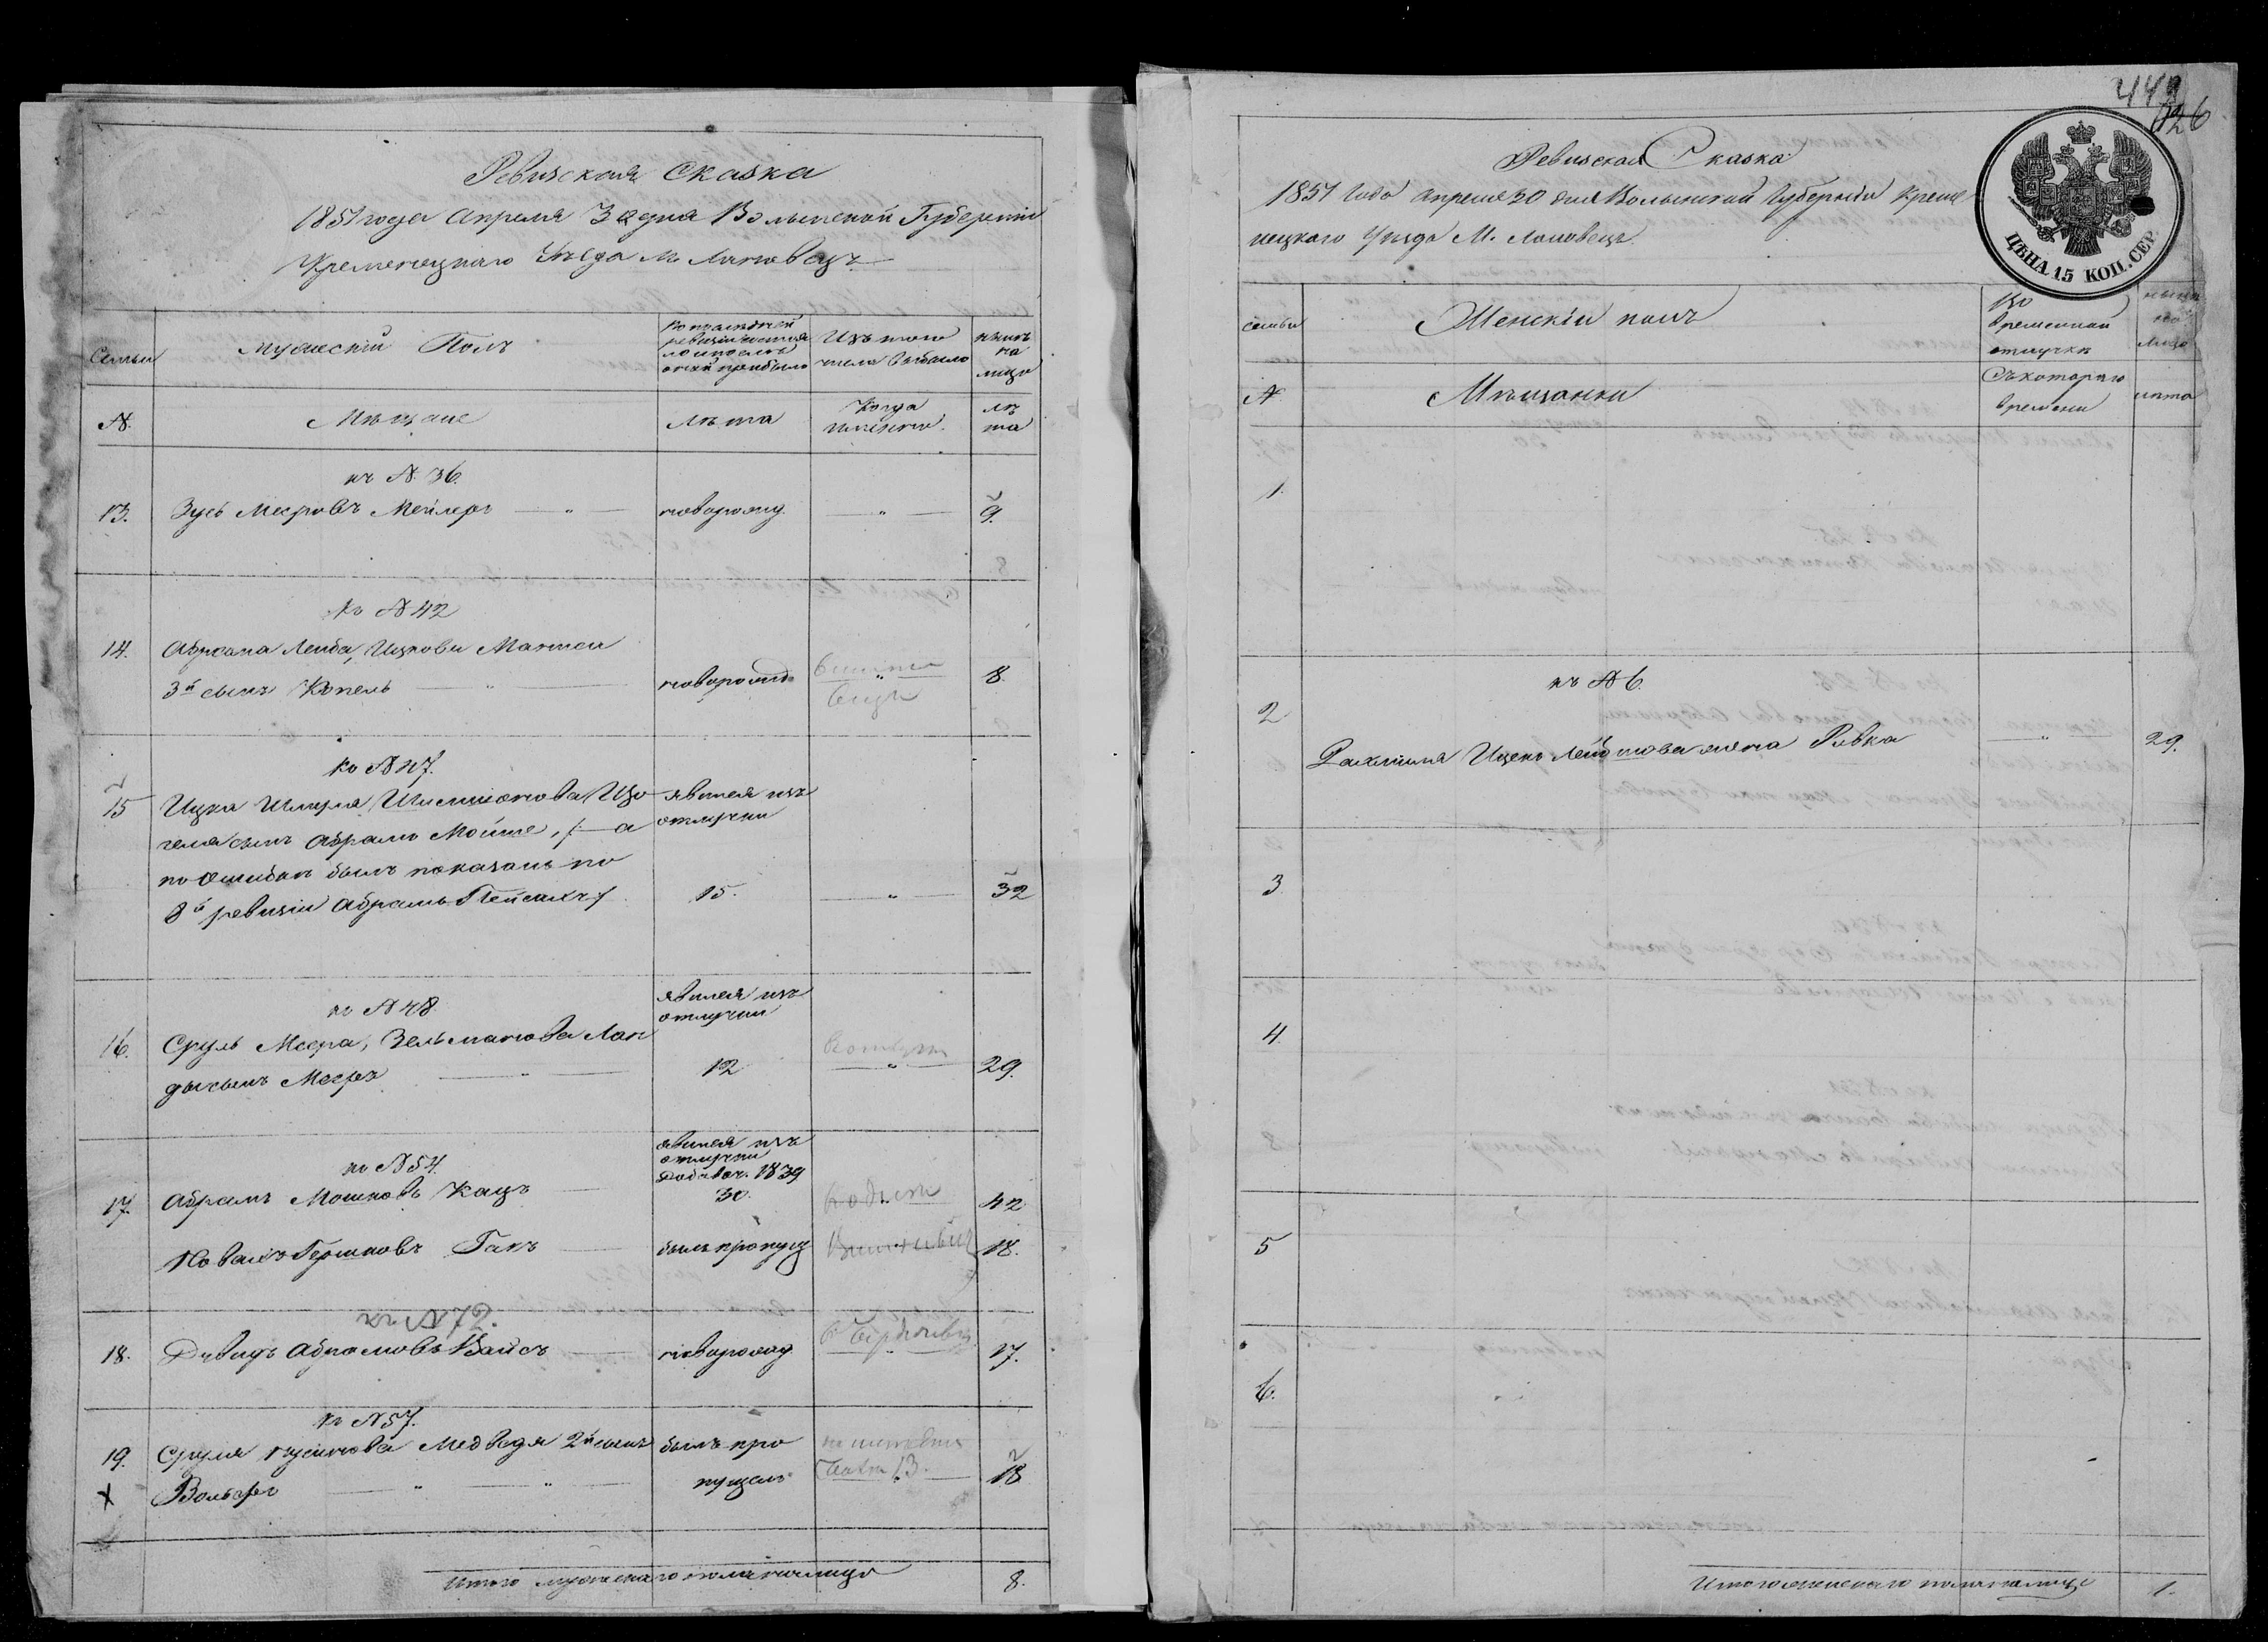 Ревизская Сказка
1851 года Апреля 30 дня Волынской Губерніи
Кременецкаго Уѣзда м. Лановецъ
Семьи
Мужескій Полъ
По последней
ревизіи состояло
и после
оной прибыло
Изъ того
числа выбыло
нынѣ
на
лицо
№
Мѣщане
Лѣта
Когда
именно
лѣ
та
къ № 36.
13.
Зусь Мееровъ Мейлеръ
новорожд
9.
къ № 42
14.
Абрама Лейба, Ицкови
3й сынъ Копель
новорожд
8.
къ № 47.
15
Ицка Шмуля
сынъ Абрамъ Мойше, а
по ошибкѣ былъ показанъ по
8й ревизіи Абрамъ Пейсахъ
явился изъ
отлучки
15.
32
къ № 48
16.
Сруль Меера, Зельманова Лан
ды сынъ Мееръ
явился изъ
отлучки
12
29.
къ № 54.
17.
Абрамъ Мошковъ Кацъ
явился изъ
отлучки
Добавоч. 1839
30.
42
Гершковъ Гакъ
былъ пропущ
18.
къ № 72.
18.
Давидъ Абрамовъ Вайсъ
новорожд
17.
къ № 57.
19.
Сруля Медведя 2й сынъ
Вольфъ
былъ про
пущенъ
18
Итого мужескаго пола на лицо
8.
449
126
Ревизская Сказка
1851 Года Апреля 30 дня Волынской Губерніи Креме
нецкаго Уѣзда М. Лановецъ.
ЦѢНА 15 КОП. СЕР.
семьи
Женскій полъ
Во
временной
отлучкѣ
нынѣ
на
лицо
№
Мѣщанки
Съ котораго
времени
лѣта
1.
къ № 6.
2
Рахмиля Ицекъ жена Ривка
29.
3
4
5
6.
Итого женскаго пола на лицо
1.